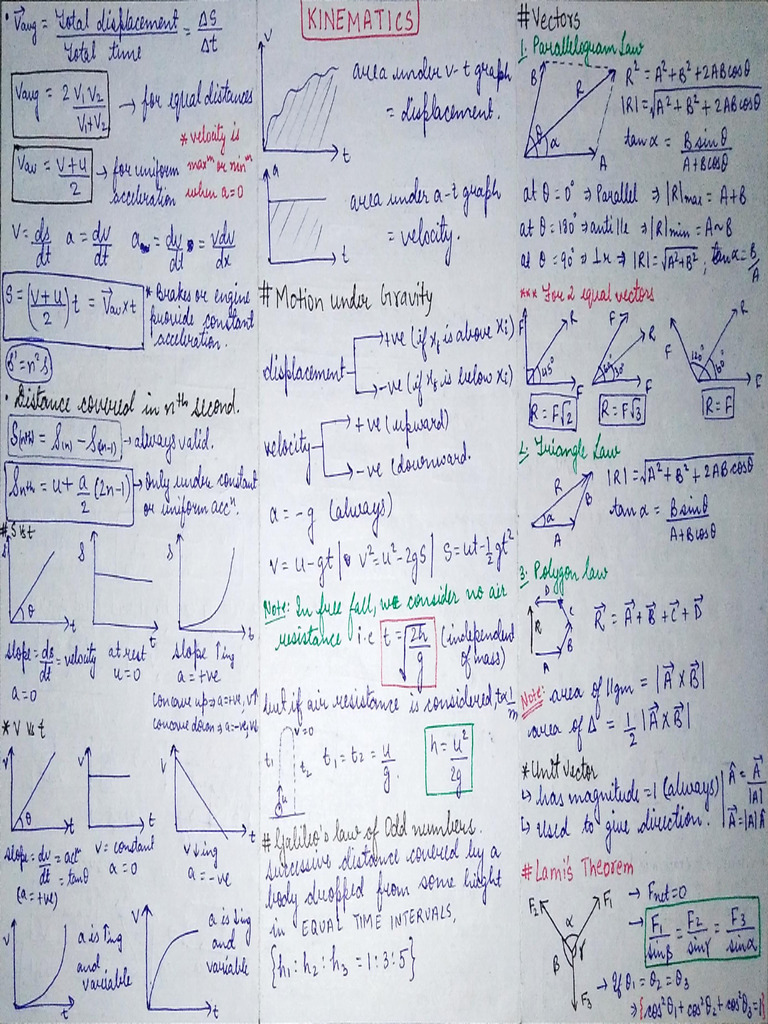 KINEMATICS
• V⃗avg = Total displacement / Total time = ΔS / Δt
Vavg = 2 V₁V₂ / V₁+V₂ → for equal distances
* velocity is
maxᵐ or minᵐ
when a=0
Vav = V+u / 2 → for uniform
acceleration
V = ds/dt a = dv/dt a = dv/dt = vdv/dx
S = (V+u / 2) t = V⃗av x t
* Brakes or engine
provide constant
acceleration.
S' = n²S
• Distance covered in nᵗʰ second.
S(nth) = S(n) − S(n-1) → always valid.
Snth = u + a/2 (2n-1) → only under constant
or uniform accⁿ.
# S vs t
S
θ
t
S
t
S
t
slope = ds/dt = velocity
a=0
at rest
u=0
slope ↑ing
a=+ve
concave up ⇒ a=+ve, v↑
concave down ⇒ a=-ve, v↓
* V vs t
V
θ
t
V
t
V
t
slope = dv/dt = accⁿ
= tanθ
(a=+ve)
V = constant
a=0
V ↓ing
a=-ve
V
t
a is ↑ing
and
variable
V
t
a is ↓ing
and
variable
V
t
area under v-t graph
= displacement.
a
t
area under a-t graph
= velocity.
# Motion under Gravity
displacement
→ +ve (if xf is above xi)
→ -ve (if xf is below xi)
velocity
→ +ve (upward)
→ -ve (downward.
a = -g (always)
V = u-gt | V² = u²-2gS | S = ut-½gt²
Note: In free fall, we consider no air
resistance i.e t = √2h/g (independent
of mass)
but if air resistance is considered, t∝1/m
V=0
t₁
t₂
u
t₁ = t₂ = u/g.
h = u²/2g
# Galileo's law of Odd numbers.
successive distance covered by a
body dropped from some hight
in EQUAL TIME INTERVALS,
{h₁ : h₂ : h₃ = 1:3:5}
# Vectors
1. Parallelogram Law
B
R
θ
α
A
R² = A²+B²+2ABcosθ
|R| = √A²+B²+2ABcosθ
tanα = Bsinθ / A+Bcosθ
at θ=0° ⇒ Parallel ⇒ |R|max = A+B
at θ=180° ⇒ anti lle ⇒ |R|min = A~B
at θ=90° ⇒ ⊥r ⇒ |R| = √A²+B² ; tanα = B/A
*** For 2 equal vectors
F
R
45°
F
R = F√2
F
R
30°
F
R = F√3
F
R
120°
60°
F
R = F
2. Triangle Law
R
B
α
A
|R| = √A²+B²+2ABcosθ
tanα = Bsinθ / A+Bcosθ
3. Polygon law
D
C
R
B
A
R⃗ = A⃗+B⃗+C⃗+D⃗
Note: area of llgm = |A⃗ X B⃗|
area of Δ = ½ |A⃗ X B⃗|
* Unit vector
↳ has magnitude = 1 (always)
↳ used to give direction.
Â = A⃗ / |A|
A⃗ = |A| Â
# Lami's Theorem
F₂
F₁
α
β
γ
F₃
→ Fnet=0
→ F₁/sinβ = F₂/sinγ = F₃/sinα
→ If θ₁ = θ₂ = θ₃
⇒ {cos²θ₁+cos²θ₂+cos²θ₃=1}